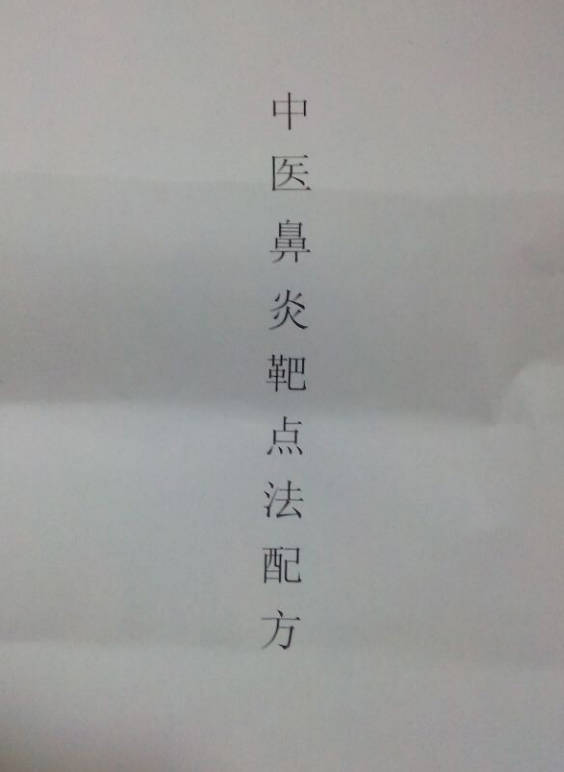 中医鼻炎靶点法配方